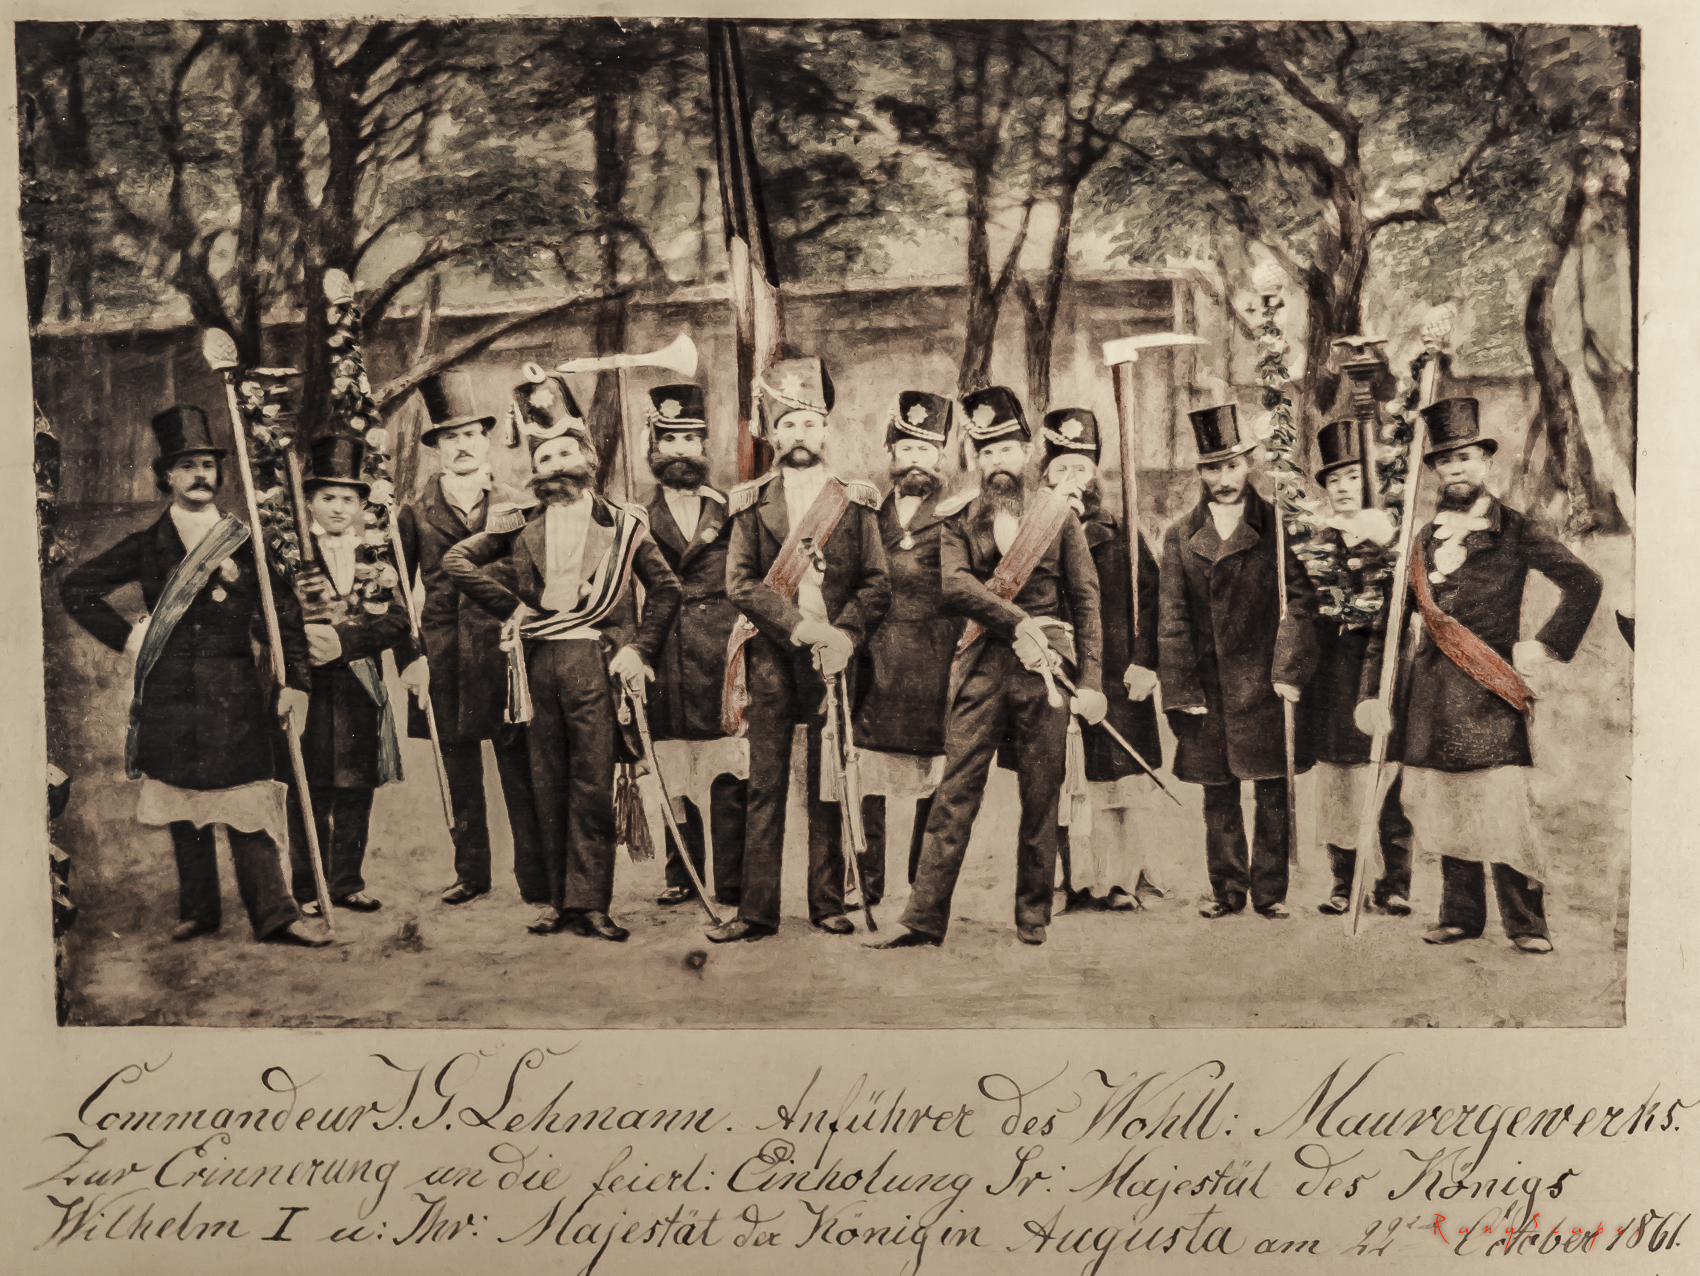 Commandeur J. G. Lehmann. Anführer des Wohll: Maurergewerks.
Zur Erinnerung an die feierl: Einholung Sr: Majestät des Königs
Wilhelm I u: Ihr: Majestät der Königin Augusta am 22 October 1861.